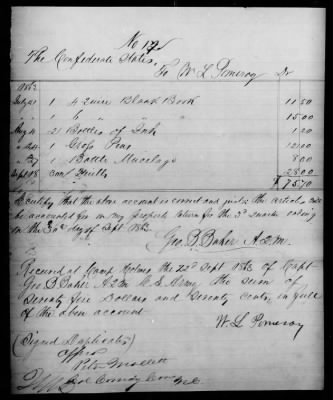 No 17
The Confederate States,
To W L Pomeroy Dr
1863
July 1 1 4 quire Blank Book 11 50
" " 1 6 " " 15 00
Aug 4 21 Bottles of Ink 1 20
" 24 1 Gross Pens 12 00
" 27 1 Bottle Mucilage 8 00
Sept 18 Quills 28 00
$ 75 70
I certify that the above account is correct and just & the articles will
be accounted for on my property return for the 3d quarter ending
on the 30th day of Sept 1863.
Geo. B Baker A.Q.M.
Received at Camp Holmes the 22d Sept 1863 of Capt
Geo. B Baker A.Q.M C.S. Army the sum of
Seventy five Dollars and Seventy Cents, in full
of the above account.
W. L Pomeroy
(Signed Duplicates)
Approved
Peter Mallett
Col Comdg N.C.